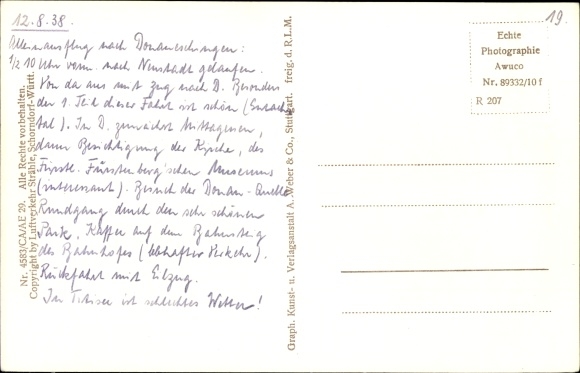 12.8.38.
Alleinausflug nach Donaueschingen:
1/2 10 Uhr vorm. nach Neustadt gelaufen.
Von da aus mit Zug nach D. Besonders
der 1. Teil dieser Fahrt ist schön (Gutach
tal). In D. zunächst Mittagessen,
dann Besichtigung der Kirche, des
Fürstl. Fürstenberg'schen Museums
(interessant). Besuch der Donau-Quelle
Rundgang durch den sehr schönen
Park. Kaffee auf dem Bahnsteig
des Bahnhofes (lebhafter Verkehr).
Rückfahrt mit Eilzug.
In Titisee ist schlechtes Wetter!
Nr. 4583/CA/AE 29. Alle Rechte vorbehalten.
Copyright by Luftverkehr Strähle, Schorndorf-Württ.
Graph. Kunst- u. Verlagsanstalt A. Weber & Co., Stuttgart. freig. d. R.L.M.
19.
Echte
Photographie
Awuco
Nr. 89332/10 f
R 207